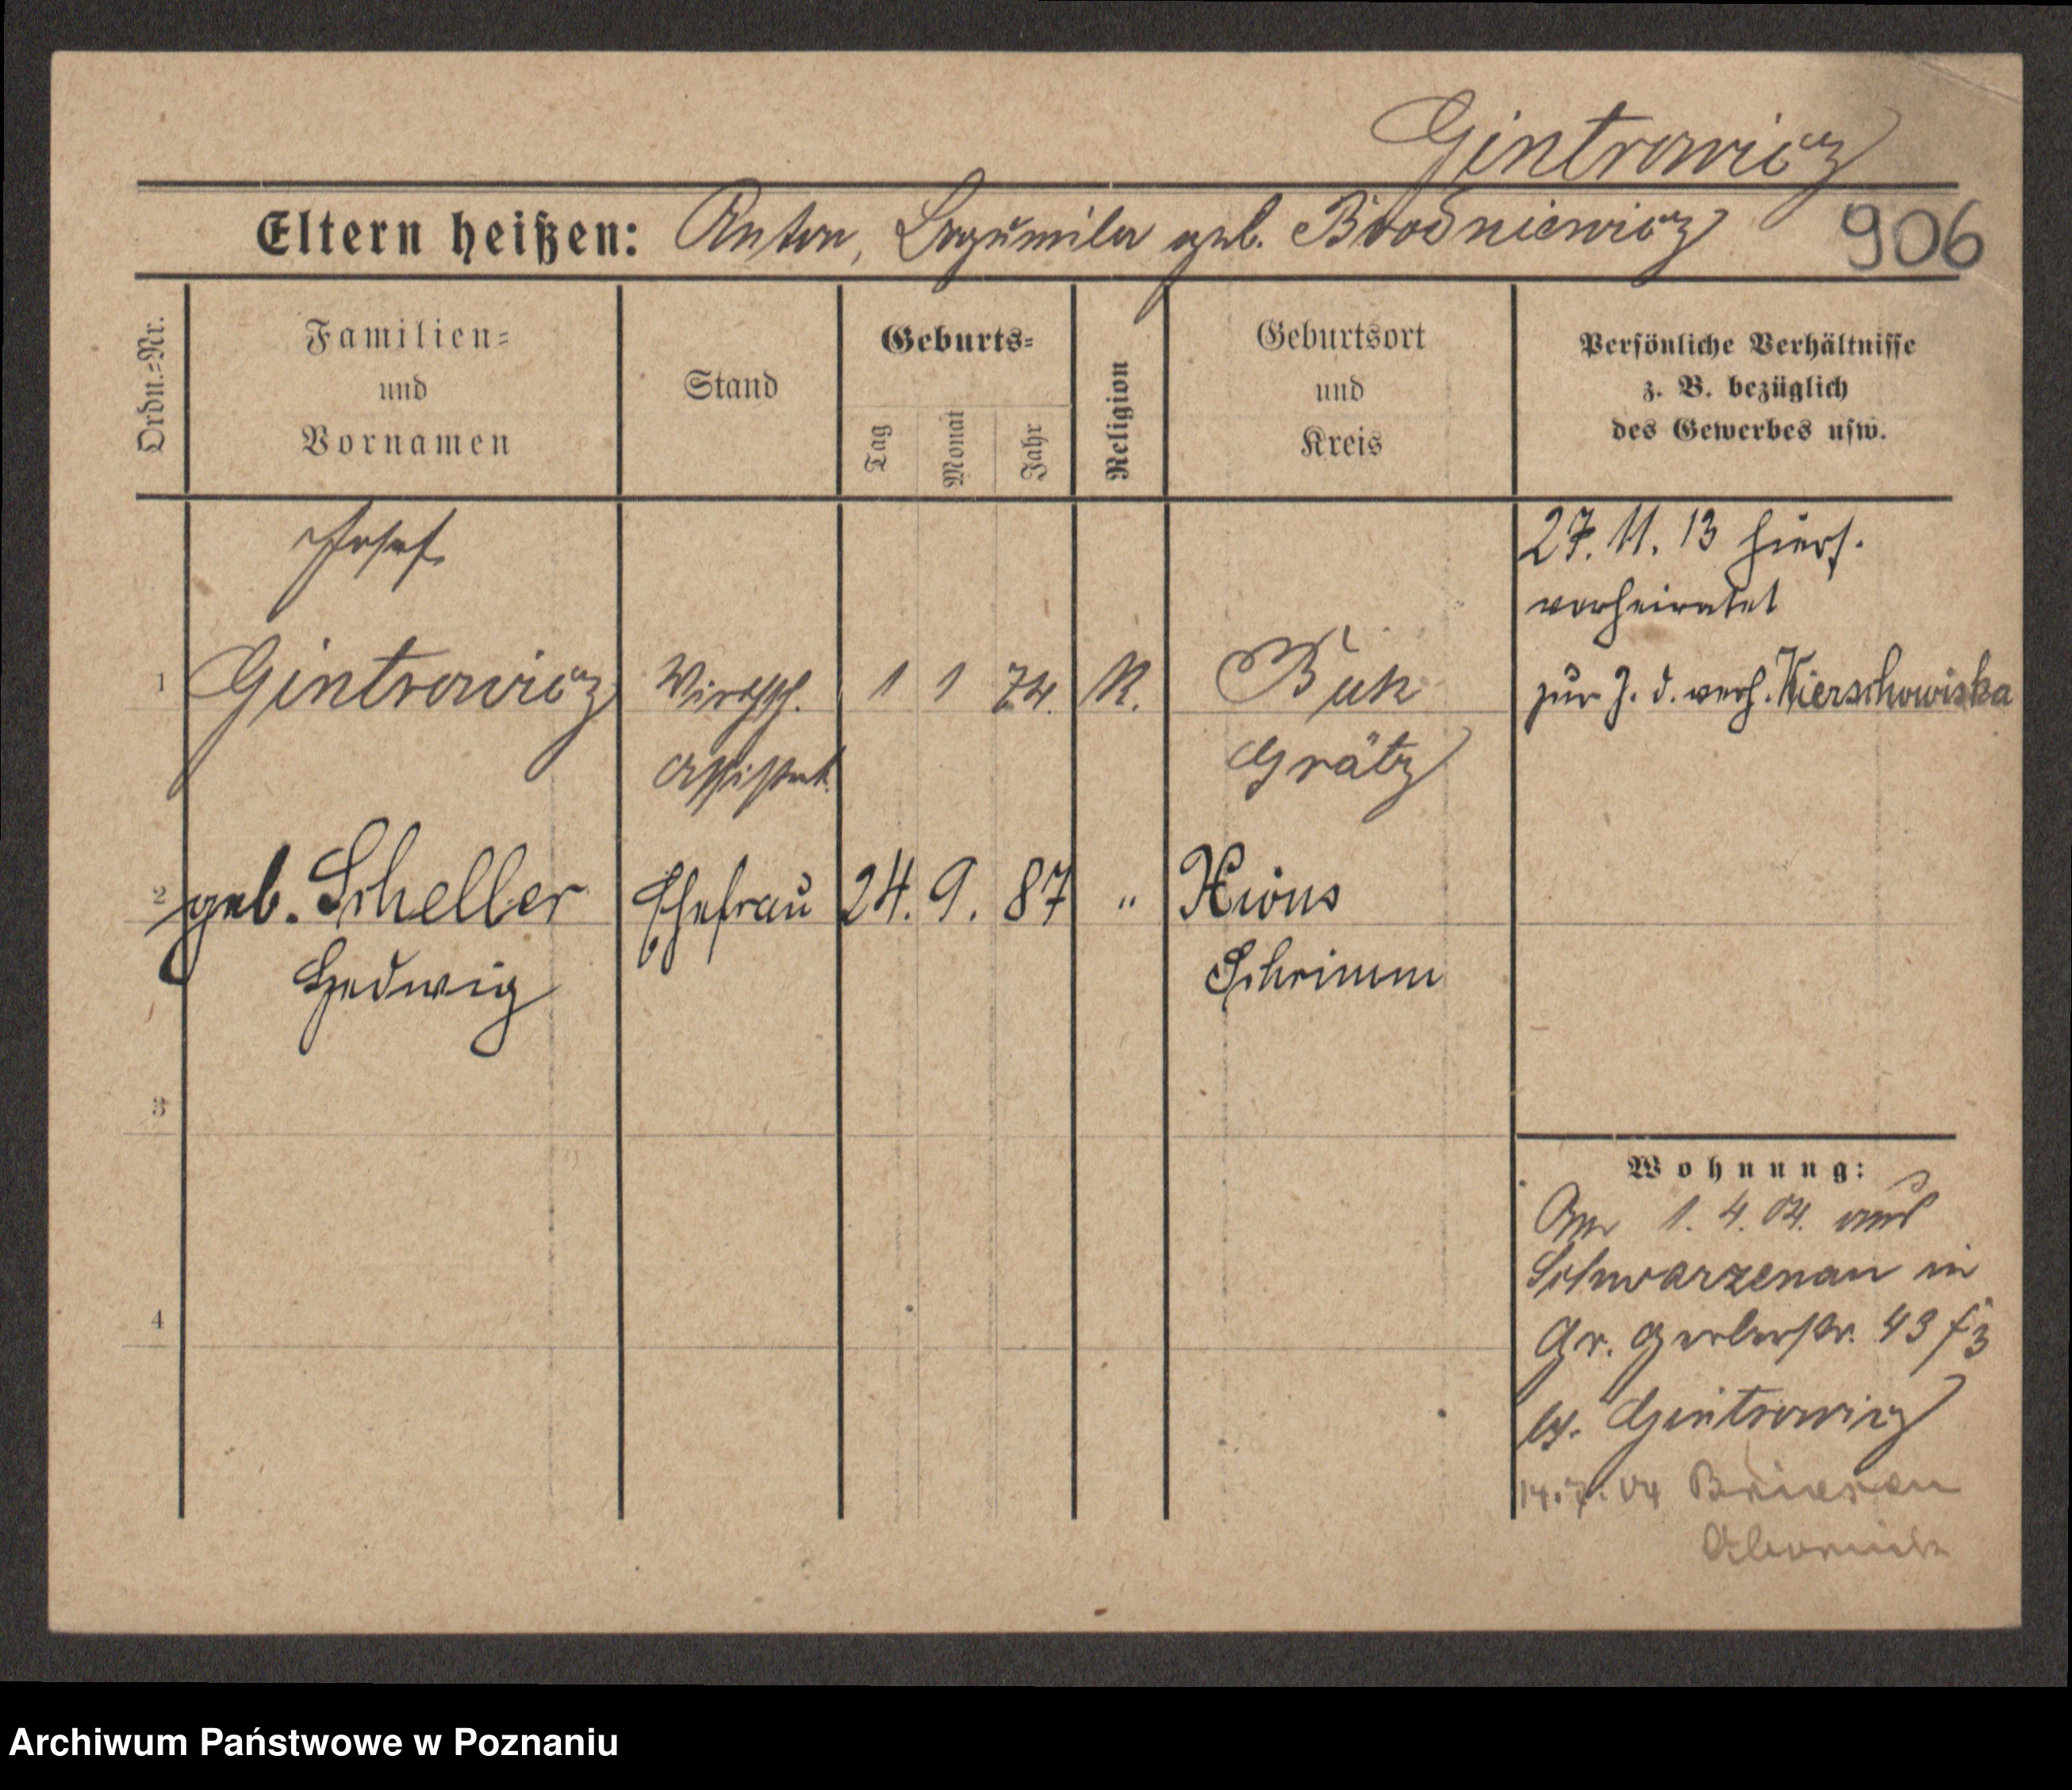 Gintrowicz
Eltern heißen: Anton, Bogumila geb. Brodniewicz 906
Ordn.-Nr.
Familien-
und
Vornamen
Stand
Geburts-
Tag
Monat
Jahr
Religion
Geburtsort
und
Kreis
Persönliche Verhältnisse
z. B. bezüglich
des Gewerbes usw.
Josef
27. 11. 13 hiers.
verheiratet
1 Gintrowicz Wirthsch. 1 1 74. K. Buk
zur Z. d. verh. Kierschowiska
Assistent Grätz
2 geb. Scheller Ehefrau 24. 9. 87 " Xions
Hedwig Schrimm
3
4
Wohnung:
Am 1. 4. 04. aus
Schwarzenau in
Gr. Gerberstr. 43
b. Gintrowicz
14.7.04 Briesen
Obornik
Archiwum Państwowe w Poznaniu